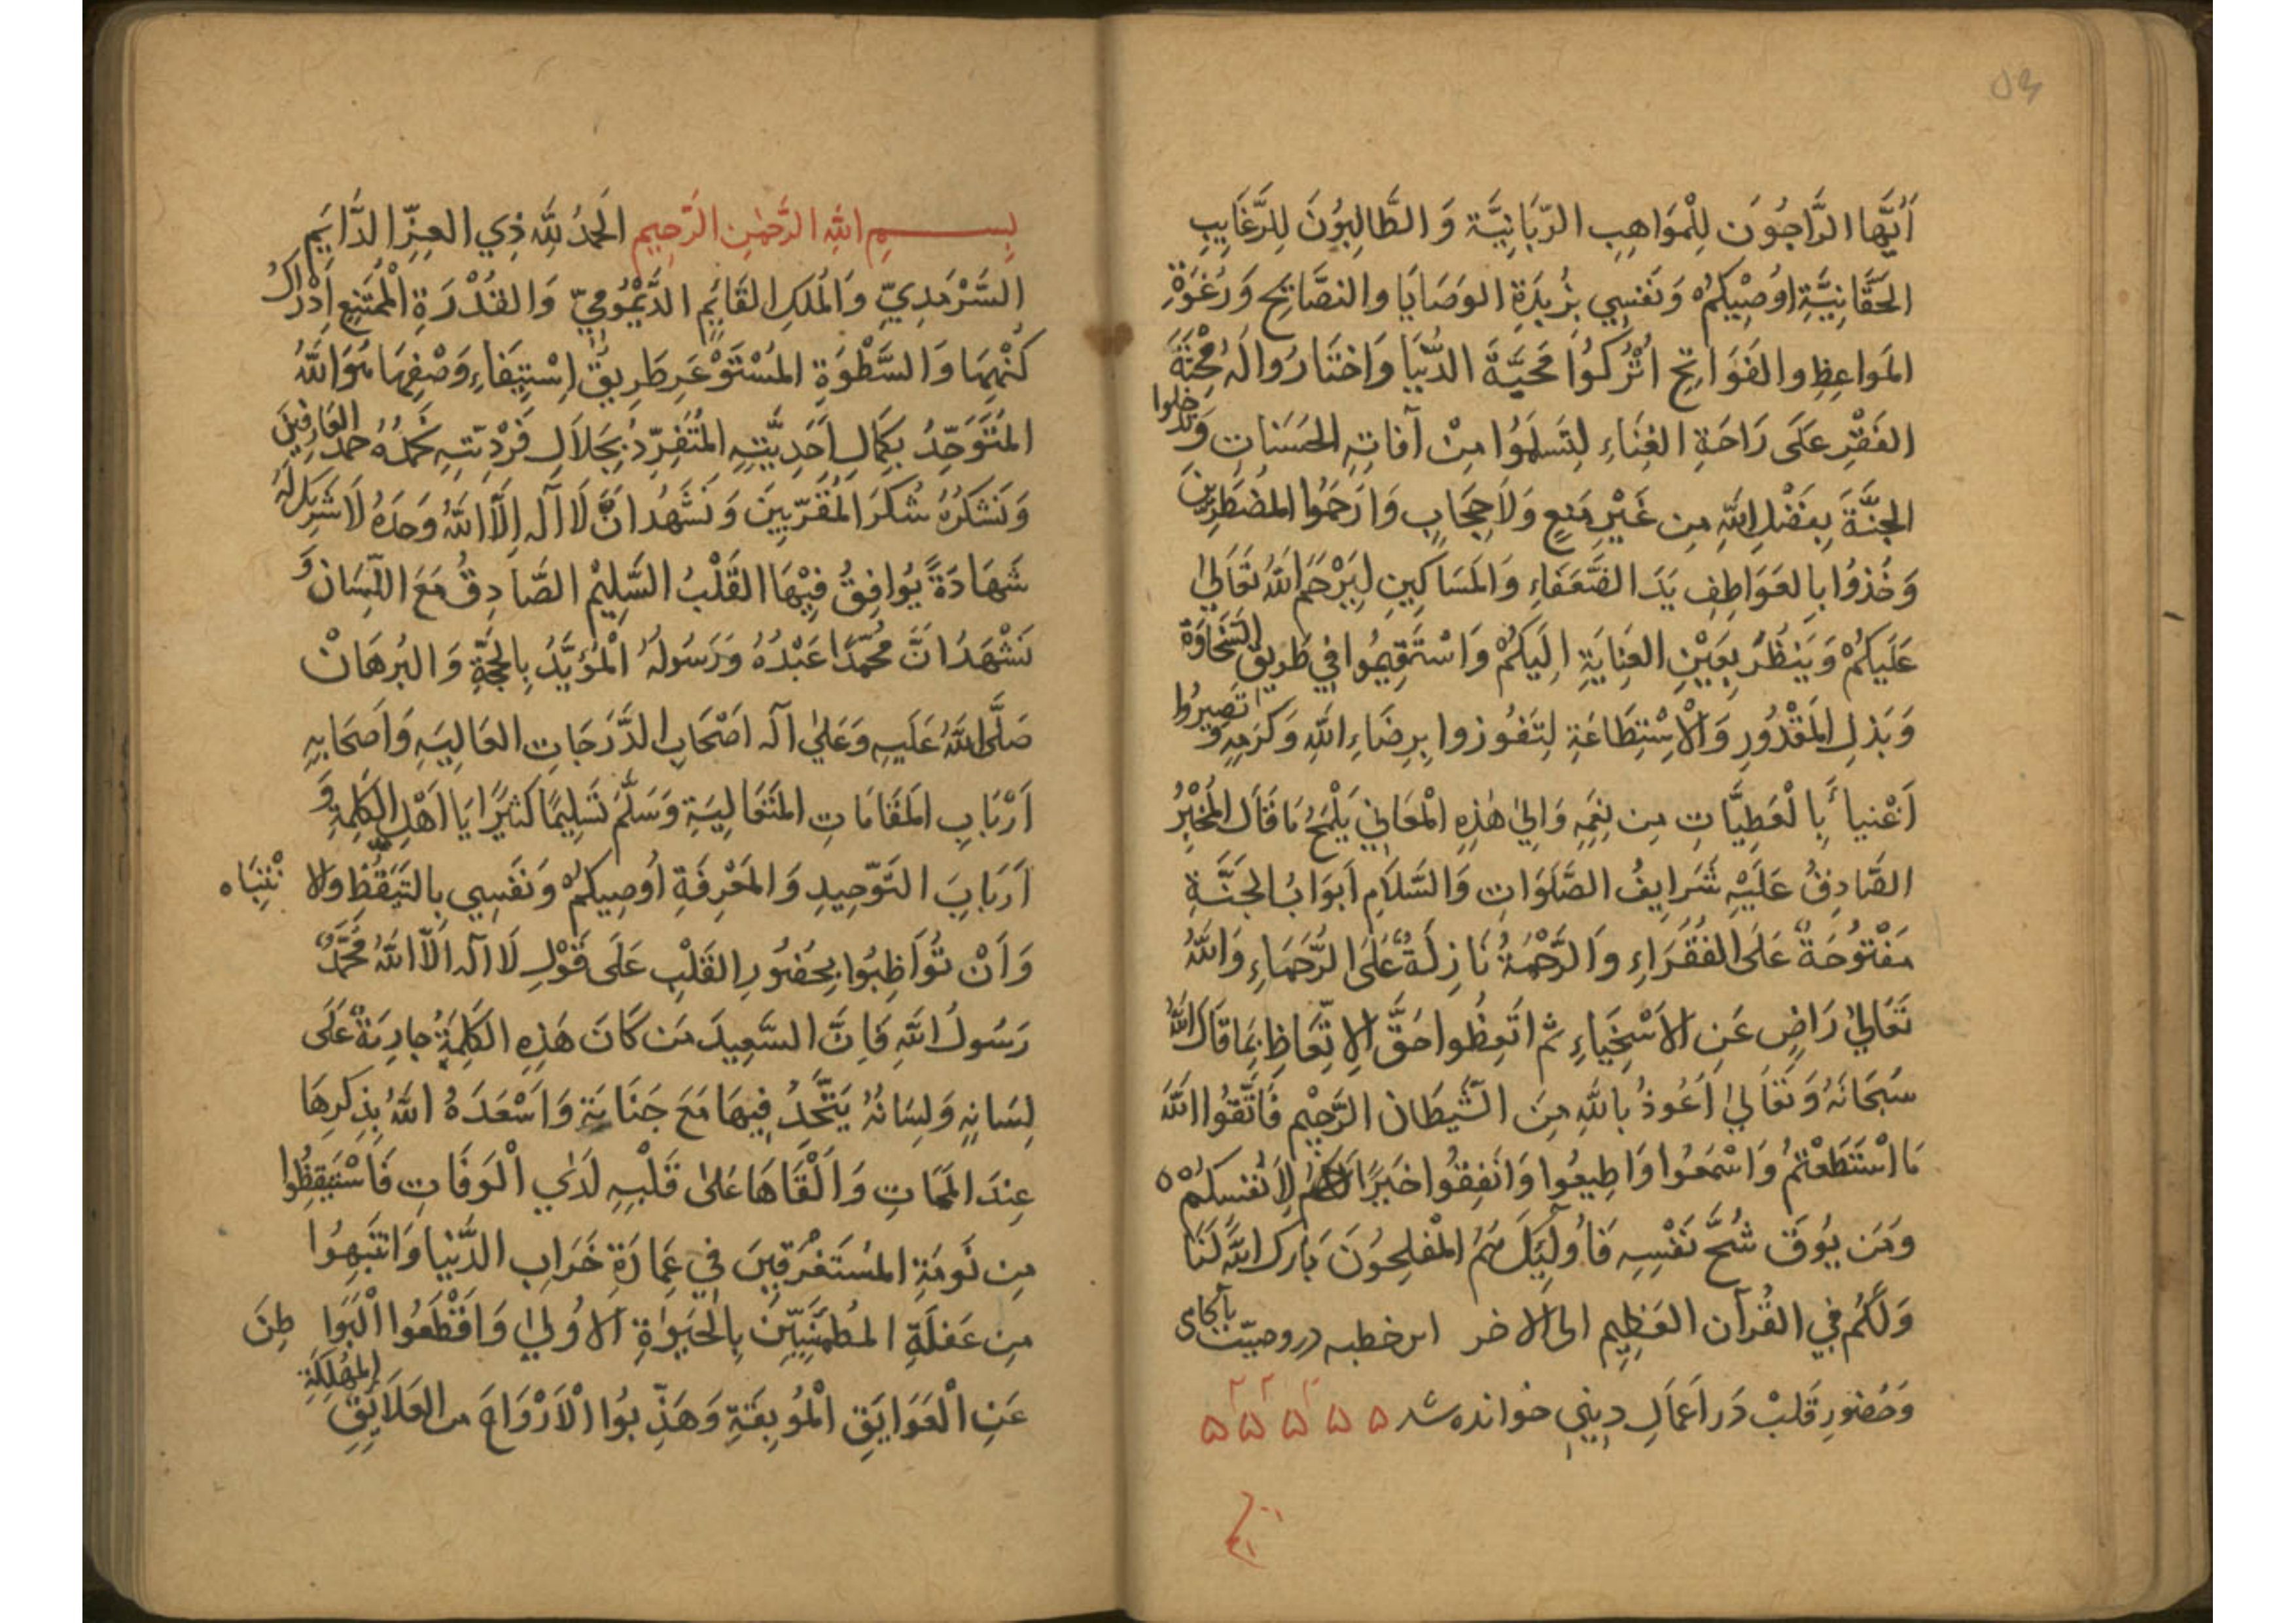 ۵۳
أَيُّهَا الرَّاجُوَنَ لِلْمَوَاهِبِ الرَّبَّانِيَّةِ وَ الطَّالِبُونَ لِلرَّغَايِبِ
الحَقَّانِيَّةِ اوُصِيْكُمْ وَنَفْسِي بِزُبدَةِ الوَصَايَا والنصَّائِحِ وَرُغوَةِ
المَواعِظِ والفَوَاتِحِ اُتْرُكُوُا مَحَبَّةَ الدُّنْيَا وَاخْتَارُوا لَهُ مِحْنَةَ
الفَقْرِ عَلَى رَاحَةِ الغِنَاءِ لِتَسلَمَوُا مِنْ آفاتِهِ الحَسَنَاتِ وَتدخلوا
الجنَّةَ بِفَضْلِ اللَّهِ مِن غَيْرِ مَنعٍ وَلاَ حِجَابٍ وَارَحَمُوا المُضْطَرِّينَ
وَخُذوُا بِالعَوَاطِفِ يَدَ الضُّعَفَاءِ وَالمَسَاكِينِ لِيَرْحَمَ اللَّهُ تَعَالىٰ
عَلَيكُمْ وَيَنظُرَ بِعَيْنِ العِنايَةِ اِلَيكُمْ وَاسْتَقِيمُوا فِي طَرِيقِ السَّخَاوَة
وَبَذلِ المَقْدُورِ وَالْاِسْتِطَاعَةِ لِتَفُوزوا بِرِضَاءِ اللَّهِ وَكَرَمِهِ وَ تصِيرُوا
اَغْنياءَ بِالْعَطِيَّاتِ مِن نِعَمِهِ وَاِلىٰ هٰذِهِ الْمَعَانِي يَلْمَحُ مَا قَالَ المُخْبِرُ
الصَّادِقُ عَلَيْهِ شَرَايِفُ الصَّلَوَاتِ وَالسَّلاَمِ اَبوَابُ الجَنَّةِ
مَفْتوُحَةٌ عَلَى الفُقَرَاءِ وَالرَّحْمَةُ نَازِلَةٌ عَلَى الرُّحَمَاءِ وَاللَّهُ
تَعَالىٰ رَاضٍ عَنِ الاَسْخِيَاءِ ثم اتَعِظُوا حَقَّ الاِتِّعَاظِ بِمَا قَالَ اللَّهُ
سُبحَانَهُ وَتَعَالىٰ اَعُوذُ باللَّهِ مِنَ الشَّيطَانِ الرَّجِيْمِ فَاتَّقوُا اللَّهَ
مَا اسْتَطَعْتُمُ وَاسْمَعُوا وَاطِيعُوا وَانفِقُوا خَيرًا لِاَنفسِكُمْ
وَمَن يُوقَ شُحَّ نَفْسِهِ فَاُولٰئِكَ هُمُ المْفلِحوُنَ بَارَك اللَّهُ لَنَا
وَلَكُم فِي القُرآنِ العَظِيمِ الى الاخر اين خطبه در وصيّت بآنجاى
وَحُضورِ قَلبْ دَر اَعمَالِ دِينِي خوانده شد ۵ ۵ ۵ ۵ ۵
بِسمِ اللَّهِ الرَّحْمٰنِ الرَّحِيمِ اَلحَمدُ لِلَّهِ ذِي العِزِّ الدَّايِمِ
السَّرْمَدِيِّ وَالمُلكِ القَايِمِ الدَّيْمُومِيِّ وَالقُدْرَةِ الْمُمْتَنِعِ اِدْرَاكُ
كُنْهِهَا وَالسَّطْوَةِ المُسْتَوْعَرِ طَرِيقُ اِسْتِيفَاءِ وَصْفِهَا هُوَ اللَّهُ
المُتَوَحِّدُ بِكَمَالِ اَحَدِيَّتِهِ المُتَفرِّدُ بِجَلاَلِ فَرْدِيَّتِهِ نَحمَدُهُ حمد العَارِفِينَ
وَنَشكرُهُ شُكرَ المُقَرَّبِينَ وَنَشْهَدُ اَنْ لاَ اِلٰهَ اِلَّا اللَّهُ وَحدَهُ لاَ شَرِيكَ لَهُ
شَهَادَةً يُوَافِقُ فِيْهَا القَلْبُ السَّلِيمُ الصَّادِقُ مَعَ اللِّسَان وَ
نَشْهَدُ اَنَّ مُحَمَّدًا عَبْدُهُ وَرَسُولُهُ الْمُؤَيَّدُ بِالحُجَّةِ وَالبُرهَانْ
صَلَّى اللَّهُ عَلَيهِ وَعَلىٰ آلِهِ اَصْحَابِ الدَّرَجَاتِ العَالِيَهِ وَاَصحَابِهِ
اَرْبَابِ المَقَامَاتِ المُتَعَالِيَةِ وَسَلَّمَ تَسلِيمًا كَثيرًا يَا اَهْلَ الكَلِمَةِ وَ
اَربَابَ التَوحِيدِ وَالمَعْرِفَةِ اُوصِيكمْ وَنَفسِي بِالتَّيَقُّظِ وَالا نْتِبَاه
وَاَنْ تُوَاظِبُوا بِحُضُورِ القَلْبِ عَلَى قَوْلِ لاَ اِلٰهَ اِلَّا اللَّهُ مُحَمَّدٌ
رَسُولُ اللَّهِ فَاِنَّ السَّعِيدَ مَن كَانَ هَذِهِ الكَلِمَةُ جاريَةٌ عَلَى
لِسَانِهِ وَلِسَانُهُ يَتَّحِدُ فِيهَا مَعَ جَنَانِهِ وَاَسْعَدَهُ اللَّهُ بِذِكرِهَا
عِندَ المَمَاتِ وَاَلْقَاهَا عَلىٰ قَلْبِهِ لَدَي الْوَفَاتِ فَاسْتَيقِظُوا
مِن نَومَةِ المُستَغرِقِينَ فِي عِمَارَةِ خَرَابِ الدُّنيا وَانتَبِهُوا
مِن غَفلَةِ المُطمَئِنِّينَ بِالحَيٰوةِ الاُوُلىٰ وَاقْطَعُوا الْبَوَا طِنَ
عَنِ الْعَوَايَقِ الْمُوُبِقَةِ وَهَذِّبوُا الْاَرْوَاحَ من العَلاَيِقِ المُهلِكَةِ